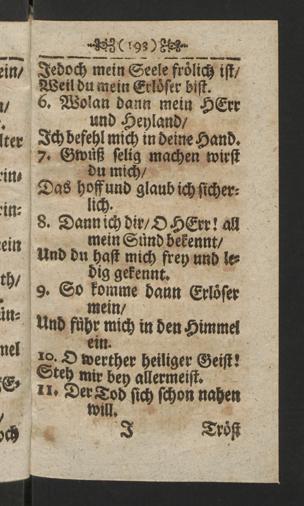 (193)
Jedoch mein Seele frölich ist/
Weil du mein Erlöser bist.
6. Wolan dann mein HErr
und Heyland/
Ich befehl mich in deine Hand.
7. Gwüß selig machen wirst
du mich/
Das hoff und glaub ich sicher-
lich.
8. Dann ich dir/ O HErr! all
mein Sünd bekennt/
Und du hast mich frey und le-
dig gekennt.
9. So komme dann Erlöser
mein/
Und führ mich in den Himmel
ein.
10. O werther heiliger Geist!
Steh mir bey allermeist.
11. Der Tod sich schon nahen
will.
J Tröst